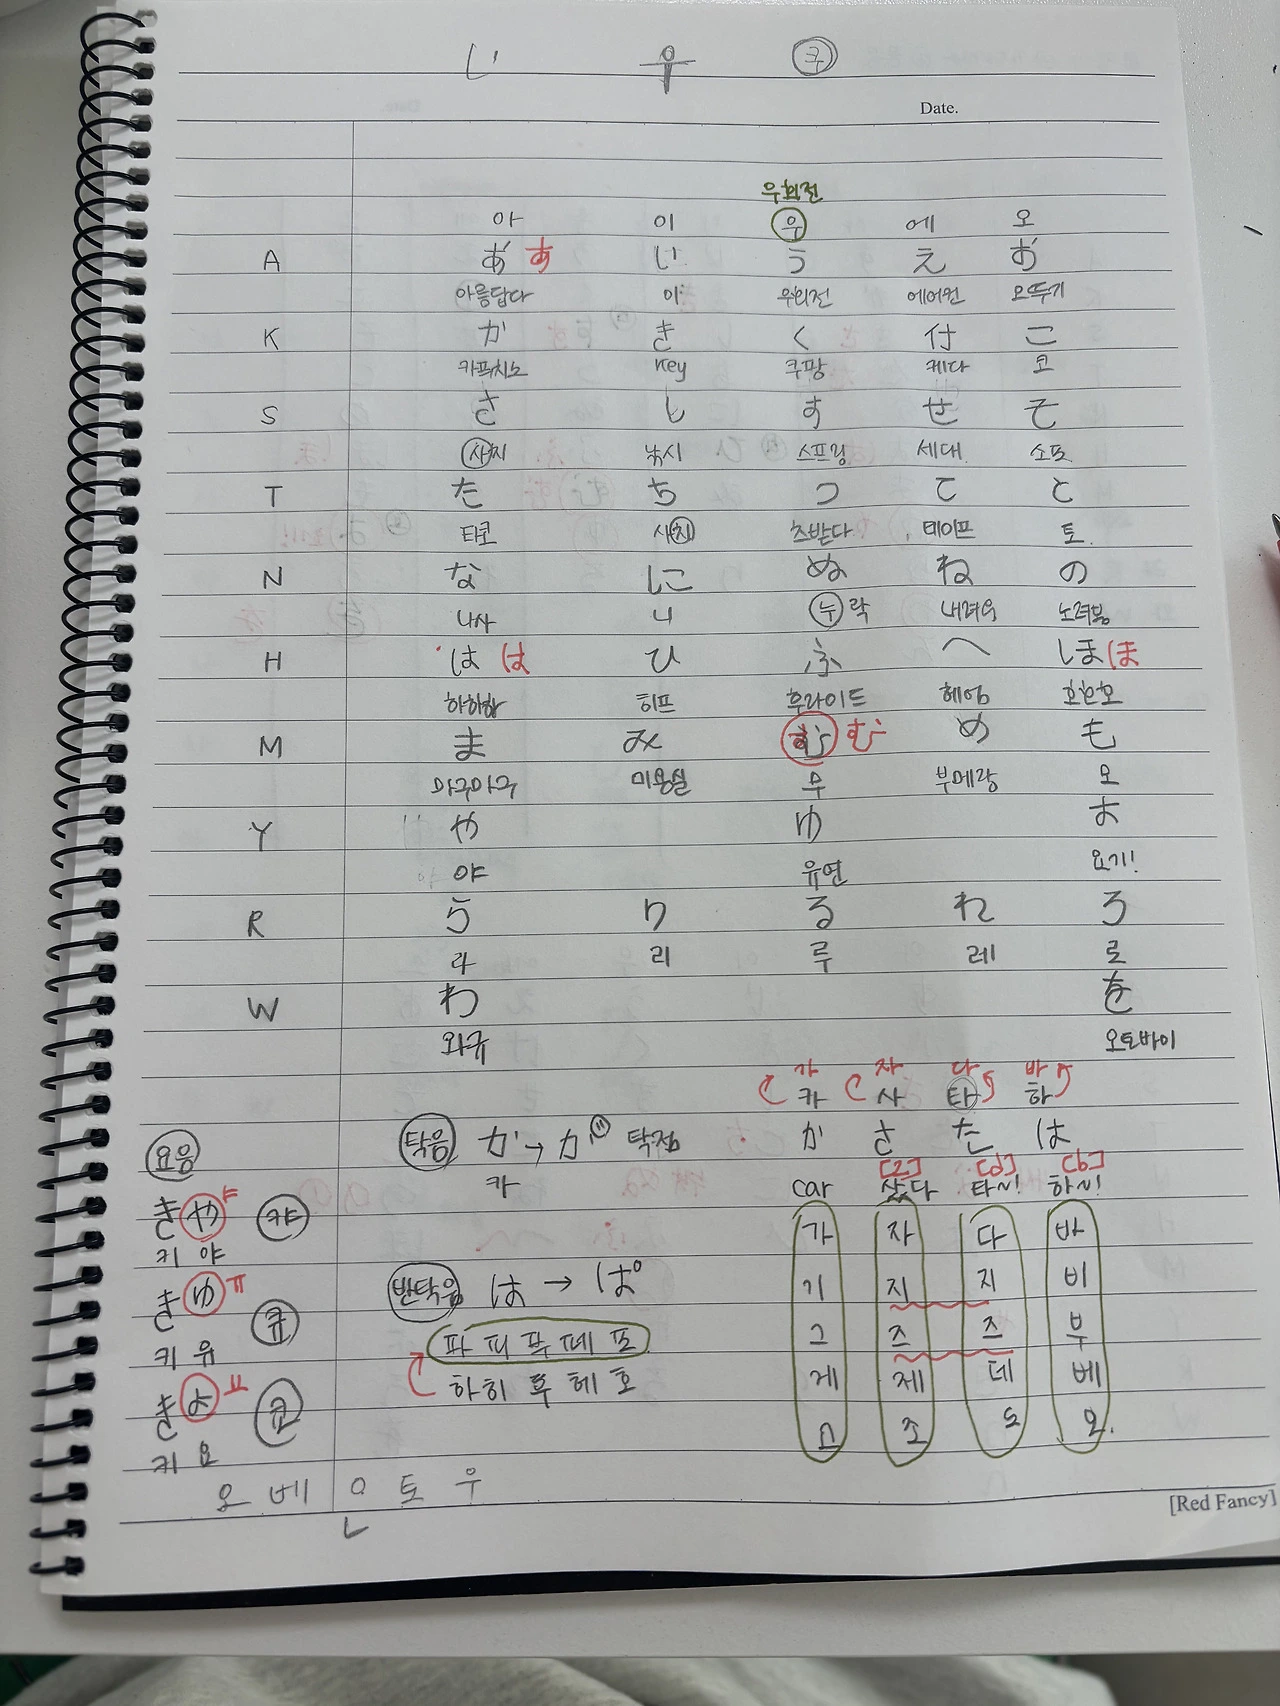 い 우 쿠
Date.
우회전
아 이 우 에 오
A あ あ い う え お
아름답다 이 우회전 에어컨 오뚜기
K か き く け こ
카푸치노 key 쿠팡 케다 코
S さ し す せ そ
사치 낚시 스프링 세대 소
T た ち つ て と
타코 사치 츠받다 테이프 토
N な に ぬ ね の
나사 니 누락 내려우 노려봄
H は は ひ ふ へ ほ ほ
하하하 히프 후라이드 헤엄 호호
M ま み む む め も
마구마구 미용실 무 부메랑 모
Y や ゆ よ
야 유연 요기!
R ら り る れ ろ
라 리 루 레 로
W わ を
와규 오토바이
가 자 다 바
카 사 타 하
탁음 か → が 탁점 か さ た は
카 [z] [d] [b]
car 살다 타~! 하~!
요음
きや ㅑ 캬
키 야
きゆ ㅠ 큐
키 유
きよ ㅛ 쿄
키 요
반탁음 は → ぱ
파 피 푸 페 포
하 히 후 헤 호
가 자 다 바
기 지 지 비
그 즈 즈 부
게 제 데 베
고 조 도 보
오 베 ㅇ 토 우
ㄴ
[Red Fancy]